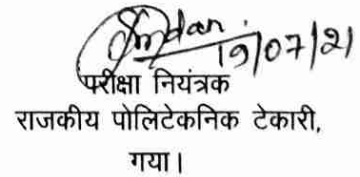 19/07/21
परीक्षा नियंत्रक
राजकीय पोलिटेकनिक टेकारी,
गया।